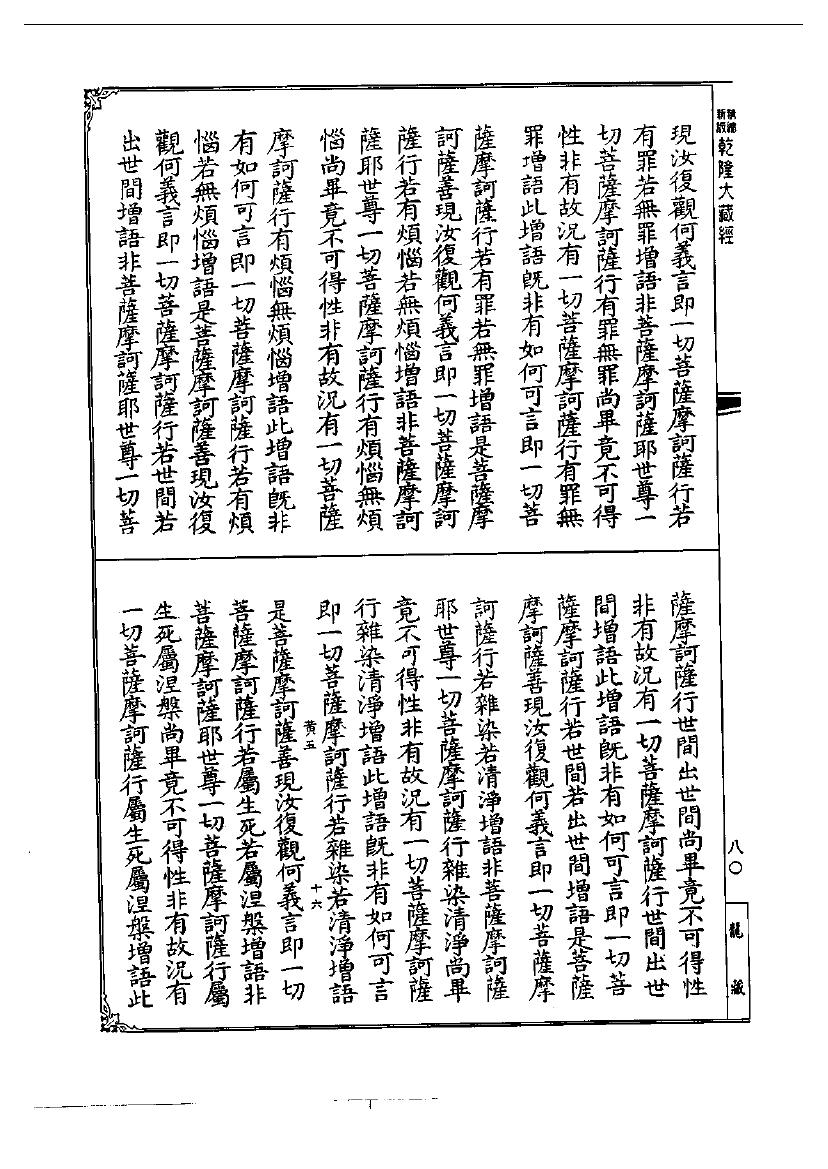 新編
新版
乾隆大藏經
現汝復觀何義言即一切菩薩摩訶薩行若
有罪若無罪增語非菩薩摩訶薩耶世尊一
切菩薩摩訶薩行有罪無罪尚畢竟不可得
性非有故況有一切菩薩摩訶薩行有罪無
罪增語此增語既非有如何可言即一切菩
薩摩訶薩行若有罪若無罪增語是菩薩摩
訶薩善現汝復觀何義言即一切菩薩摩訶
薩行若有煩惱若無煩惱增語非菩薩摩訶
薩耶世尊一切菩薩摩訶薩行有煩惱無煩
惱尚畢竟不可得性非有故況有一切菩薩
摩訶薩行有煩惱無煩惱增語此增語既非
有如何可言即一切菩薩摩訶薩行若有煩
惱若無煩惱增語是菩薩摩訶薩善現汝復
觀何義言即一切菩薩摩訶薩行若世間若
出世間增語非菩薩摩訶薩耶世尊一切菩
薩摩訶薩行世間出世間尚畢竟不可得性
非有故況有一切菩薩摩訶薩行世間出世
間增語此增語既非有如何可言即一切菩
薩摩訶薩行若世間若出世間增語是菩薩
摩訶薩善現汝復觀何義言即一切菩薩摩
訶薩行若雜染若清淨增語非菩薩摩訶薩
耶世尊一切菩薩摩訶薩行雜染清淨尚畢
竟不可得性非有故況有一切菩薩摩訶薩
行雜染清淨增語此增語既非有如何可言
即一切菩薩摩訶薩行若雜染若清淨增語
黄五
十六
是菩薩摩訶薩善現汝復觀何義言即一切
菩薩摩訶薩行若屬生死若屬涅槃增語非
菩薩摩訶薩耶世尊一切菩薩摩訶薩行屬
生死屬涅槃尚畢竟不可得性非有故況有
一切菩薩摩訶薩行屬生死屬涅槃增語此
八〇
龍藏